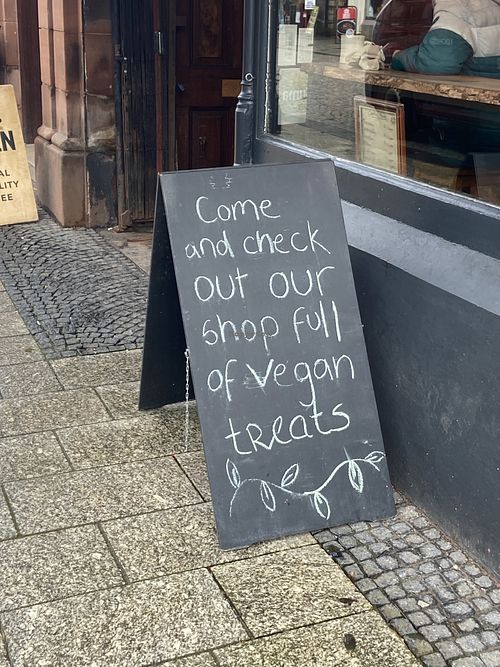 Come
and check
out our
shop full
of vegan
treats
N
AL
LITY
EE